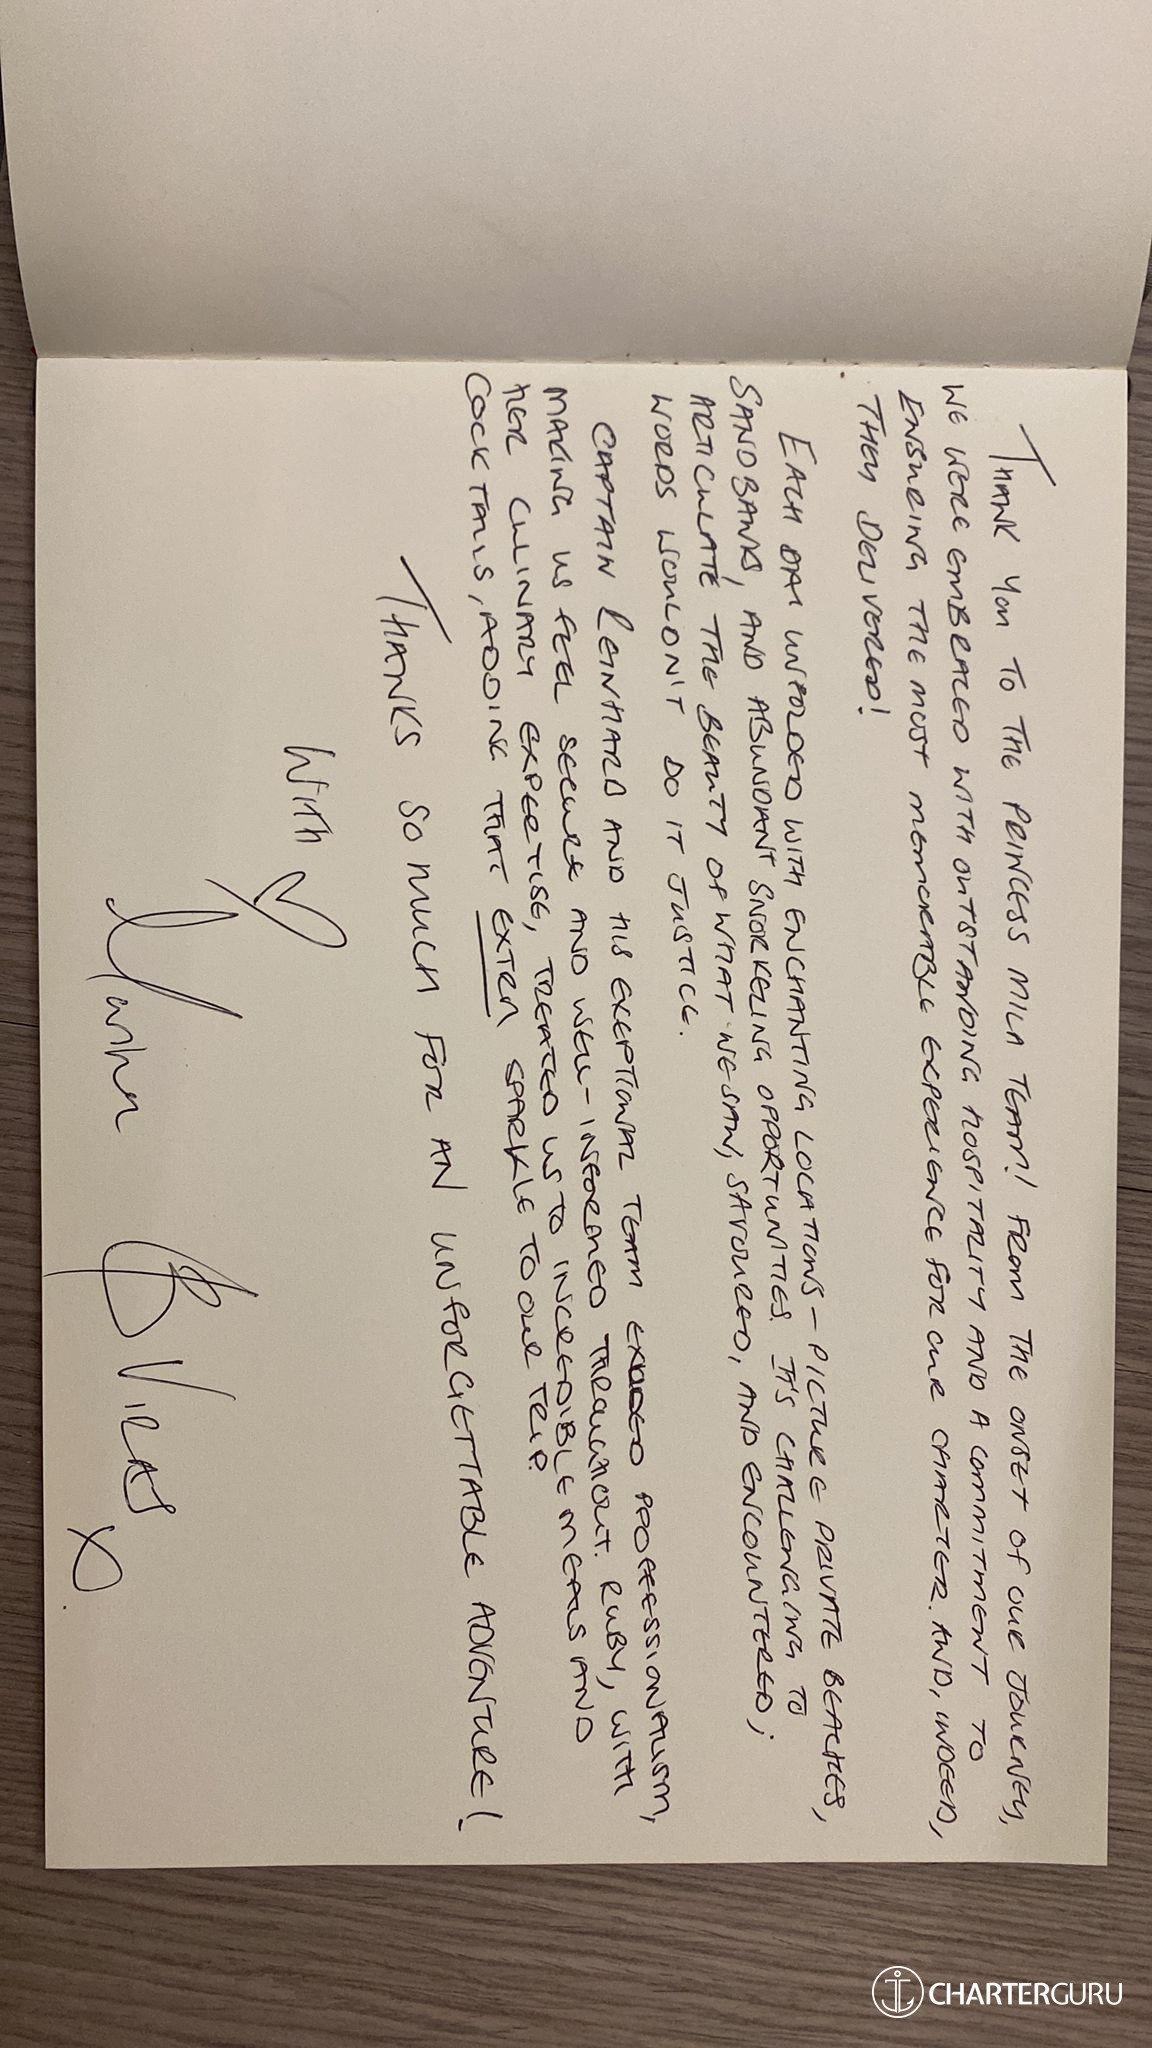 THANK YOU TO THE PRINCESS MILA TEAM! FROM THE ONSET OF OUR JOURNEY,
WE WERE EMBRACED WITH OUTSTANDING HOSPITALITY AND A COMMITMENT TO
ENSURING THE MOST MEMORABLE EXPERIENCE FOR OUR CHARTER. AND, INDEED,
THEY DELIVERED!
EACH DAY UNFOLDED WITH ENCHANTING LOCATIONS - PICTURE PRIVATE BEACHES,
SANDBANKS, AND ABUNDANT SNORKELING OPPORTUNITIES. IT'S CHALLENGING TO
ARTICULATE THE BEAUTY OF WHAT WE SAW, SAVOURED, AND ENCOUNTERED;
WORDS WOULDN'T DO IT JUSTICE.
CAPTAIN REINHARD AND HIS EXEPTIONAL TEAM EXUDED PROFESSIONALISM,
MAKING US FEEL SECURE AND WELL-INFORMED THROUGHOUT. RUBY, WITH
HER CULINARY EXPERTISE, TREATED US TO INCREDIBLE MEALS AND
COCKTAILS, ADDING THAT EXTRA SPARKLE TO OUR TRIP.
THANKS SO MUCH FOR AN UNFORGETTABLE ADVENTURE!
WITH
X
CHARTERGURU